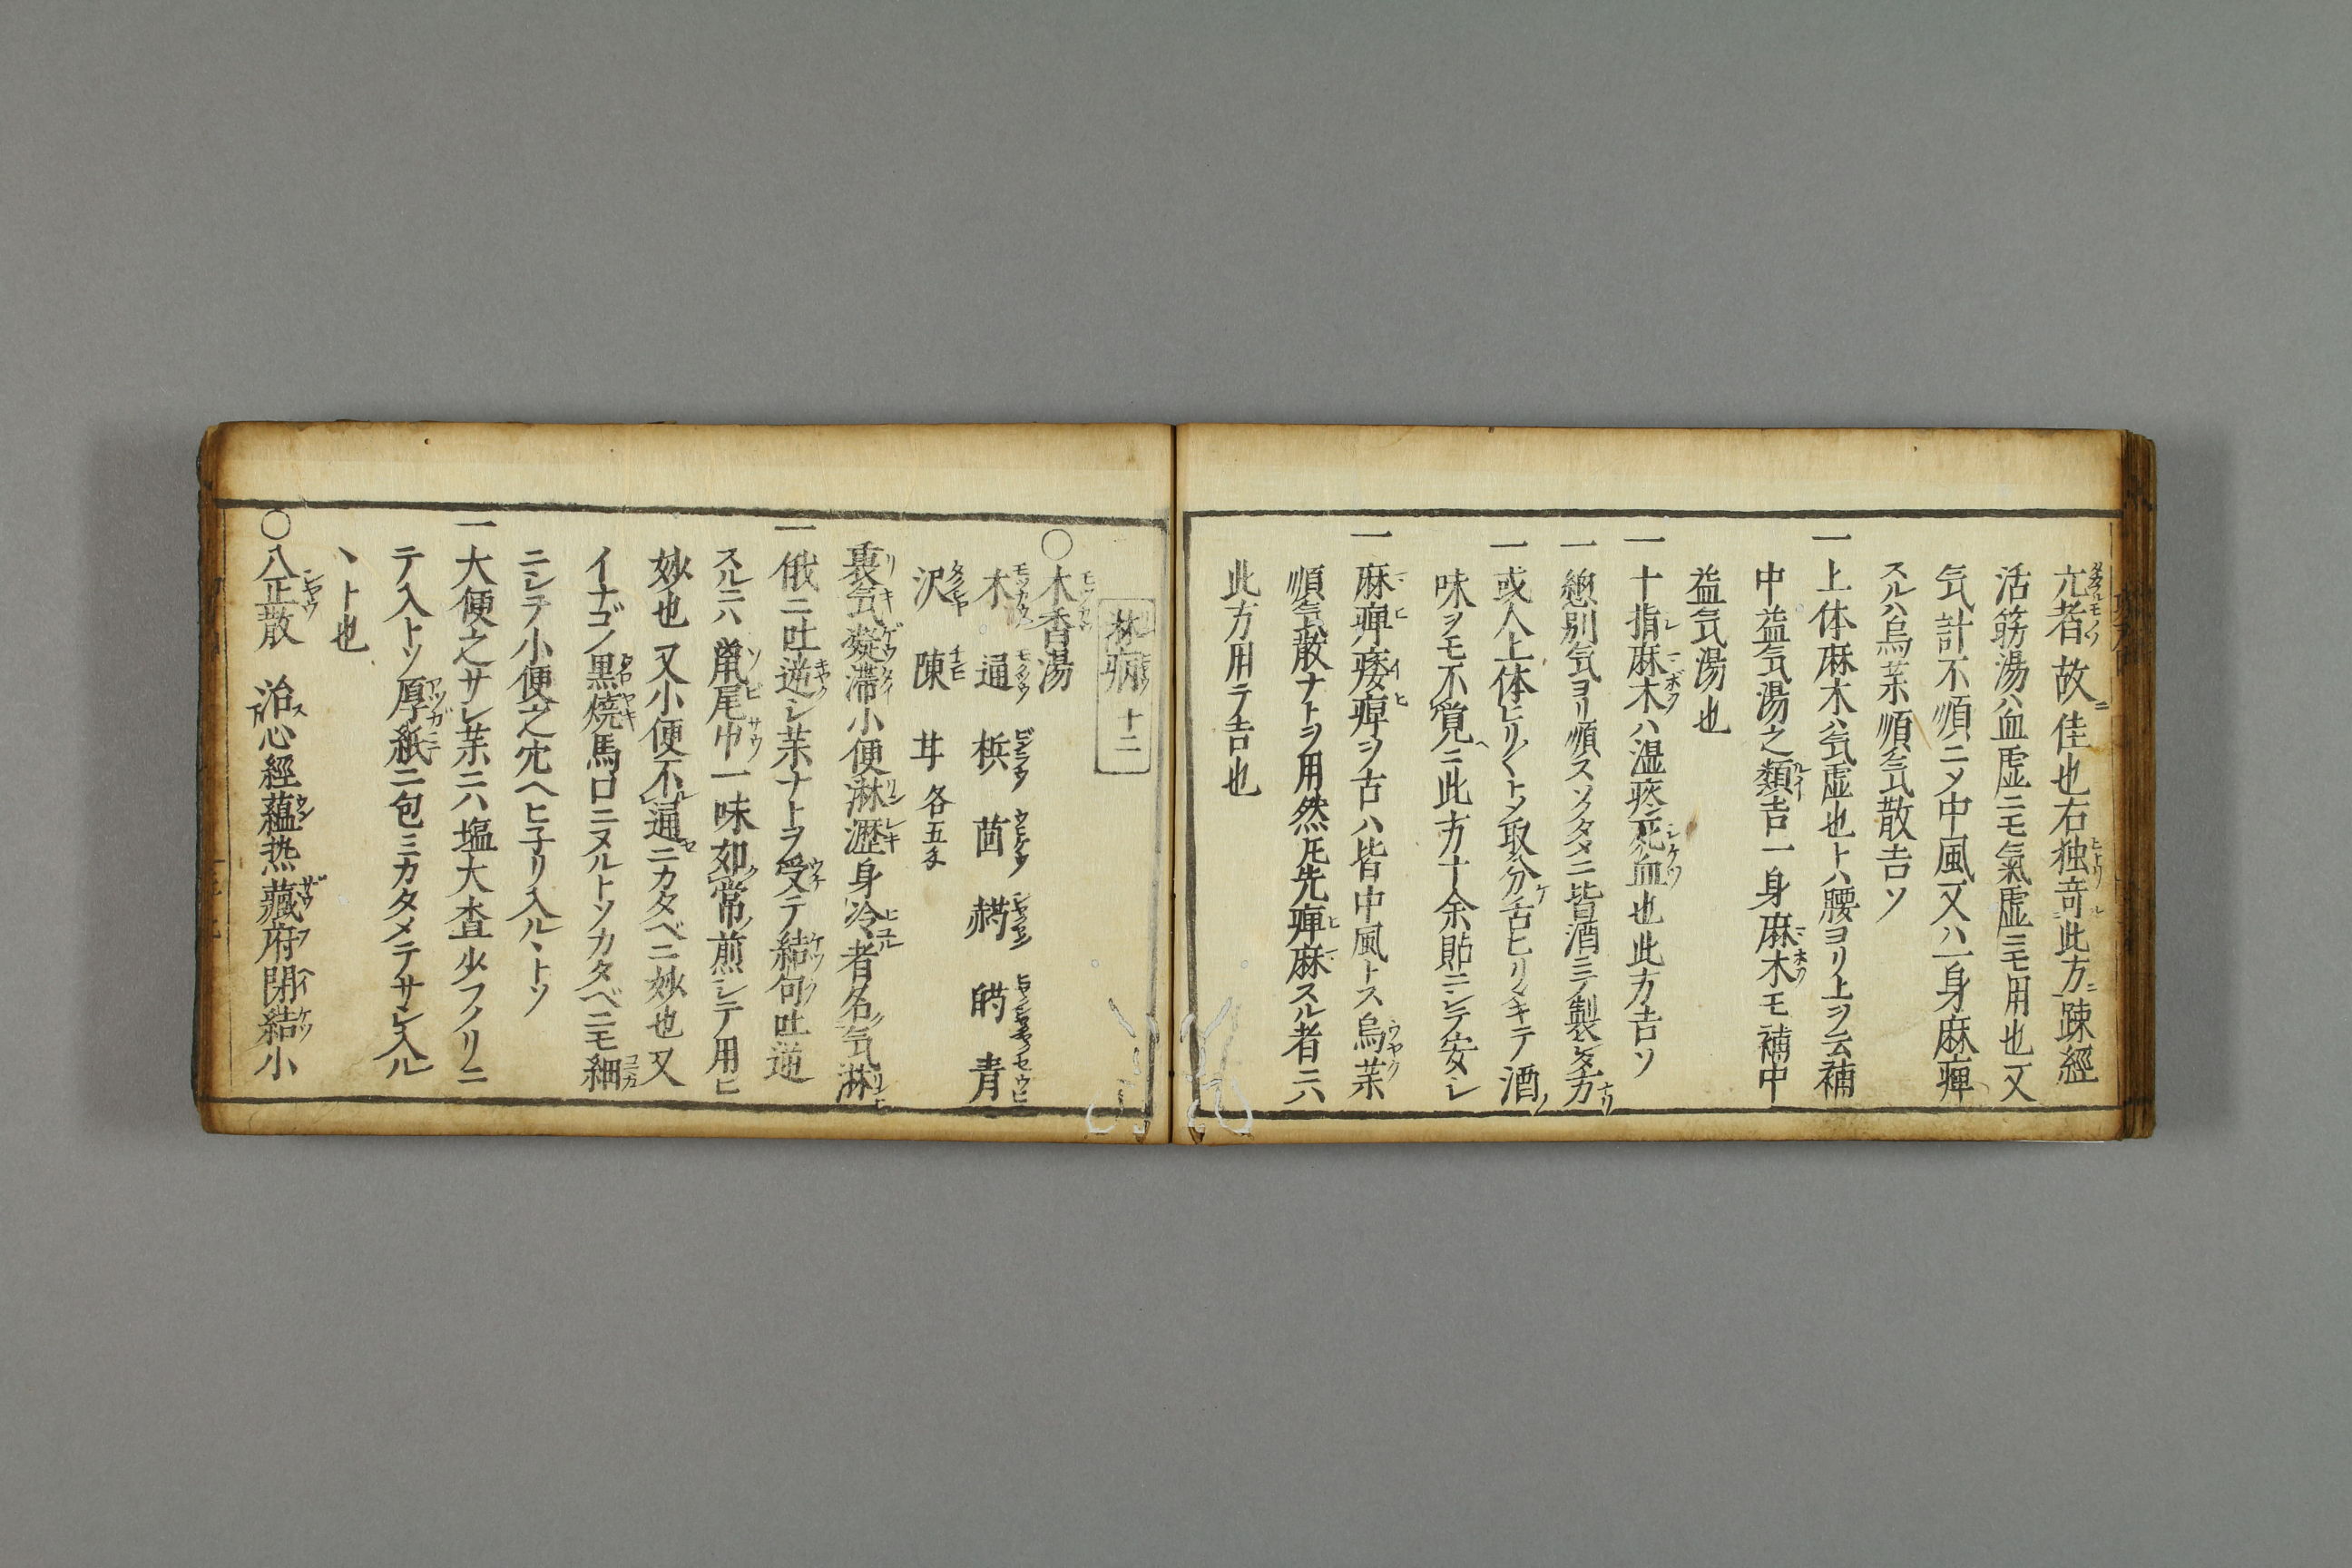 亢者故佳也右独竒此方ニ踈經
活筋湯ハ血虚ニモ氣虚ニモ用也又
気計不順ニメ中風又ハ一身麻痺
スルハ烏茱順気散吉ソ
一上体麻木ハ気虚也トハ腰ヨリ上ヲ云補
中益気湯之類吉一身麻木モ補中
益気湯也
一十指麻木ハ湿痰死血也此方吉ソ
一總別気ヨリ順スソクタニ皆酒ニテ製多方
一或人上体ヒリ〱トメ取分舌ヒリメキテ酒ノ
味ヲモ不覚ニ此方十余貼ニシテ安シ
一麻痺痿痺ヲ古ハ皆中風トス烏茱
順気散ナトヲ用然𪜈先痺麻スル者ニハ
此方用テ吉也
淋病 十二
〇木香湯
木 通 梹 茴 青
沢 陳 甘 各五
裏気凝滞小便淋瀝身冷者名気淋
一俄ニ吐逆シ茱ナトヲ受テ結句吐逆
スルニハ鼠尾屮一味如常煎シテ用ヒ
妙也又小便不通ニカタベニ妙也又
イナゴノ黒焼馬口ニヌルトソカタベニモ細
ニシテ小便之穴ヘヒ子リ入ル丶トソ
一大便之サレ茱ニハ塩大査少フノリニ
テ入トソ厚紙ニ包ミカタメテサレ入ル
丶ト也
〇八正散 治心經蘊热藏府閉結小